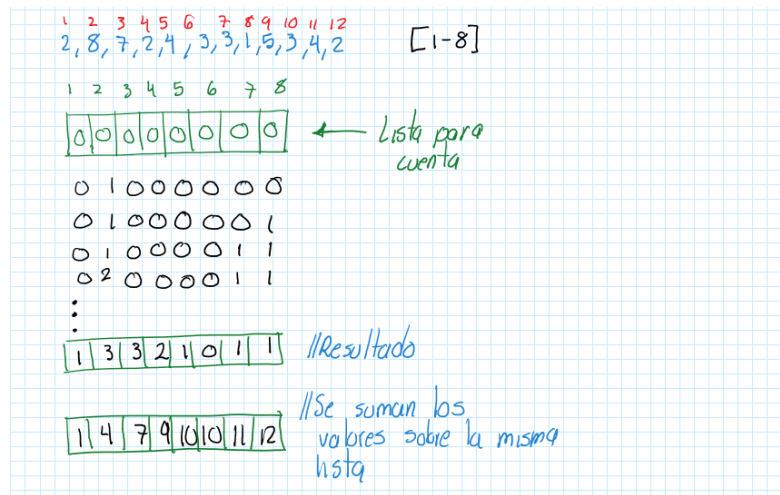 1 2 3 4 5 6 7 8 9 10 11 12
2, 8, 7, 2, 4, 3, 3, 1, 5, 3, 4, 2 [1-8]
1 2 3 4 5 6 7 8
0 0 0 0 0 0 0 0 ← Lista para
cuenta
0 1 0 0 0 0 0 0
0 1 0 0 0 0 0 1
0 1 0 0 0 0 1 1
0 2 0 0 0 0 1 1
1 3 3 2 1 0 1 1 //Resultado
//Se suman los
1 4 7 9 10 10 11 12 valores sobre la misma
lista